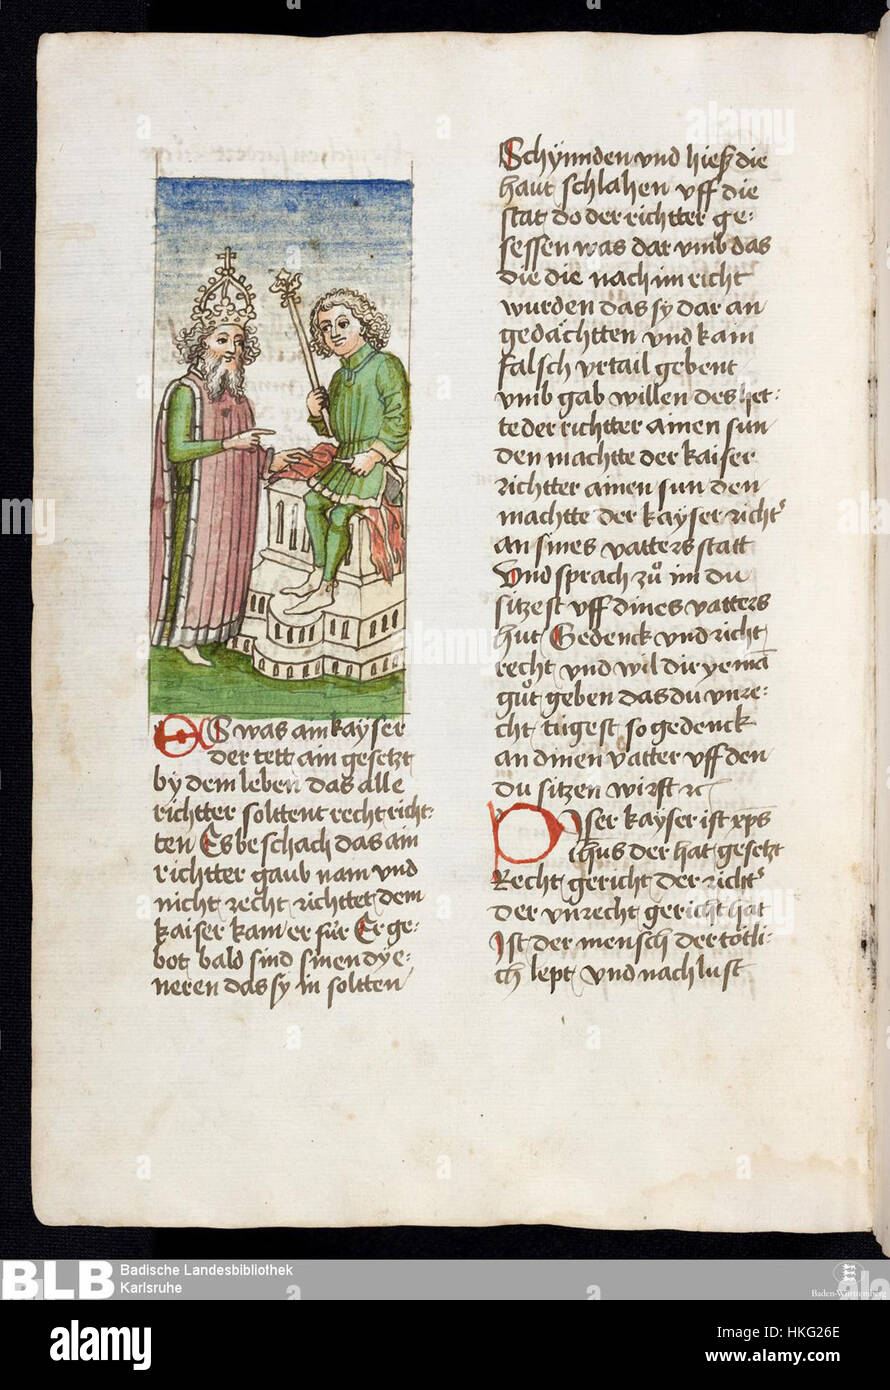 Es was ain kayser
der tett ain gesetzt
by dem leben das alle
richtter solttent recht richt-
ten Es beschach das ain
richtter gaub nam vnd
nicht recht richttet dem
kaiser kam er für Er ge-
bot bald sind sinen dye-
neren das sy in soltten
Schynnden vnd hieß die
haut schlahen vff die
stat do der richtter ge-
sessen was dar vmb das
die die nach im richt
wurden das sy dar an
gedächtten vnd kain
falsch vrtail gebent
vmb gab willen des het-
te der richtter ainen sun
den machtte der kaiser
richtter ainen sun den
machtte der kayser richt͛
an sines vatters statt
Vnd sprach zů im du
sitzest vff dines vatters
hut Gedenck vnd richt
recht vnd wil dir yemā
gůt geben das du vnre-
cht tügest so gedenck
an dinen vatter vff den
du sitzen wirst ⁊c
Diser kayser ist xp̄s
ih̄us der hat gesetzt
Recht gericht der richt͛
der vnrecht gericht hat
Ist der mensch der tötli-
ch lept vnd nach lust
BLB Badische Landesbibliothek
Karlsruhe
Baden-Württemberg
alamy
Image ID: HKG26E
www.alamy.com